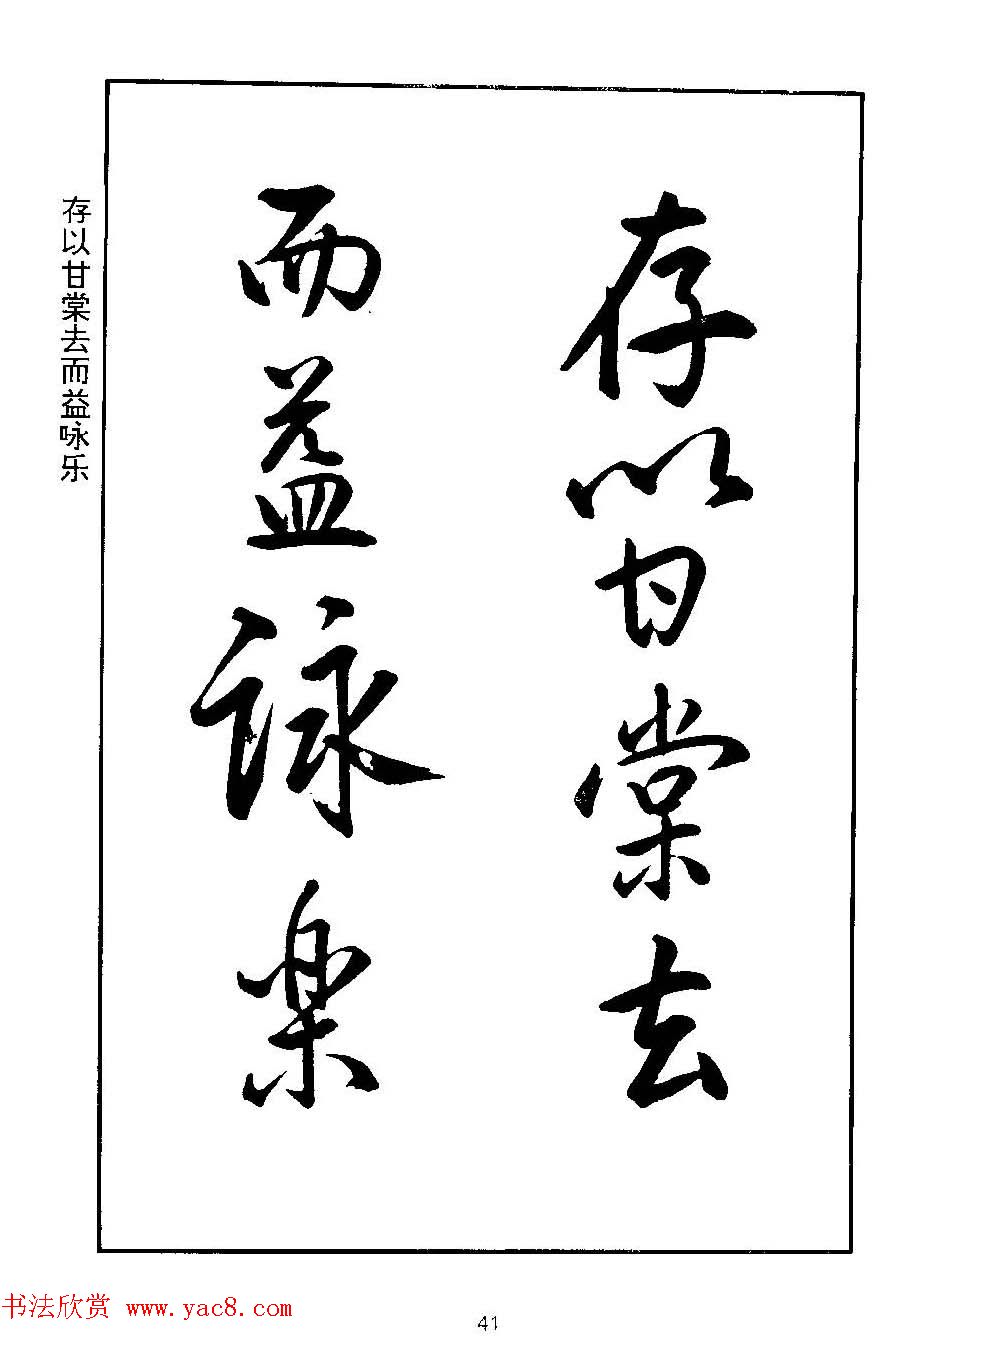 存以甘棠去
而益詠楽
存以甘棠去而益咏乐
书法欣赏 www.yac8.com
41